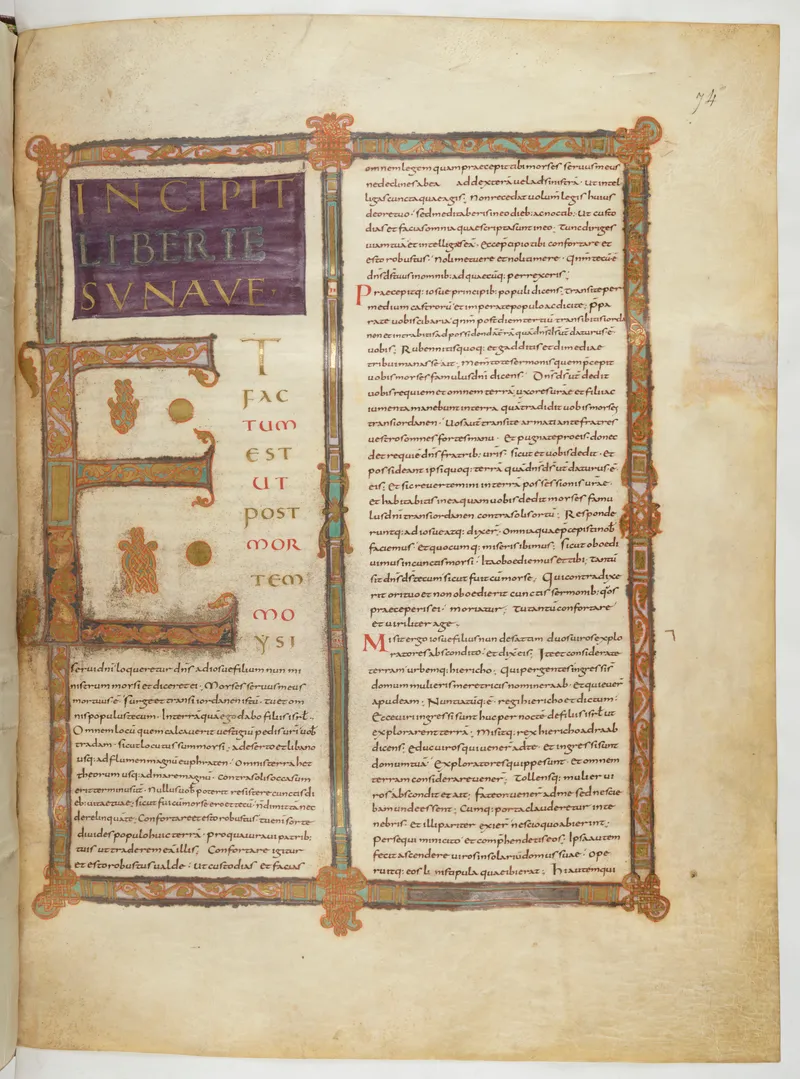 74
INCIPIT
LIBER IE
SV NAVE·
ET
FAC
TUM
EST
UT
POST
MOR
TEM
MO
YSI
serui dni loqueretur dns ad iosue filium nun mi
nistrum morsi et diceret ei · Morses seruus meus
mortuus ē · surge et transi iordanen istū · tu et om
nis populus tecum · In terrā quā ego dabo filiis isrł ·
Omnem locū quem calcauerit uestigiū pedis uri uob
tradam · sicut locutus sum morsi · a deserto et libano
usq; ad flumen magnū euphraten · Omnis terra het
theorum usq; ad mare magnū · contra solis occasum
erit terminus ur̄ · Nullus uob poterit resistere cunctis di
eb; uitae tuae; sicut fui cū morse ero et tecū · n̄ dimittā nec
derelinquā te; Confortare et esto robustus · tu eni sorte
diuides populo huic terrā · pro qua iuraui patrib;
tuis ut traderem eā illis; Confortare igitur
et esto robustus ualde · ut custodias et facias
omnem legem quam praecepit tibi morses seruus meus
ne declines ab ea ad dexterā uel ad sinistrā · ut intel
ligas cuncta quae agis; Non recedat uolum̄ legis huius
de ore tuo · sed meditaberis in eo dieb; ac noctib; ut custo
dias et facias omnia quae scripta sunt in eo; Tunc diriges
uiam tuā et intelliges eā · ecce praecipio tibi confortare et
esto robustus · noli metuere et noli timere · qnm tecū ē
dns ds tuus in omnib; ad quaecūq; perrexeris;
Praecepitq; iosue principib; populi dicens; transite per
medium castrorū et imperate populo ac dicite; Ppa
rate uobis cibaria qnm post diem tertiū transibitis iordā
nen et intrabitis ad possidendā terrā quā dns ds ur̄ daturus ē
uobis; Rubenitis quoq; et gadditis et dimidiae
tribui manasse ait; Mementote sermonis quem pcepit
uobis morses famulus dni dicens · Dns ds ur̄ dedit
uobis requiem et omnem terrā; uxores urae et filii ac
iumenta manebunt in terra quā tradidit uobis morses
trans iordanen · Uos aut̄ transite armati ante fratres
uestros omnes fortes manu · Et pugnate pro eis · donec
det requiē dns fratrib; uris · sicut et uobis dedit · et
possideant ipsi quoq; terrā quā dns ds ur̄ daturus ē
eis; et sic reuertemini in terrā possessionis urae ·
et habitabitis in ea quam uobis dedit morses famu
lus dni trans iordanen contra solis ortū; Responde
runtq; ad iosue atq; dixer̄ · Omnia quae pcepisti nob
faciemus · et quocumq; miseris ibimus; sicut oboedi
uimus in cunctis morsi · ita oboediemus et tibi; tantū
sit dns ds tecum sicut fuit cū morse · Qui contradixe
rit ori tuo et non oboedierit cunctis sermonib; quos
praeceperis ei · moriatur; Tu tantū confortare
et uiriliter age ·
Misit ergo iosue filius nun de sattim duos uiros explo
ratores abscondito · et dix̄ eis; Ite et considerate
terram urbemq; hiericho; Qui pergentes ingressi s̄
domum mulieris meretricis nomine raab · et quieuer̄
apud eam; Nuntiatūq; ē · regi hiericho et dictum:
Ecce uiri ingressi sunt huc per noctē · de filiis isrł ut
explorarent terrā; Misitq; rex hiericho ad raab
dicens; educ uiros qui uener̄ ad te · et ingressi sunt
domum tuā · Exploratores quippe sunt · et omnem
terram considerare uener̄; Tollensq; mulier ui
ros abscondit et ait; fateor uener̄ ad me · sed nescie
bam unde essent; Cumq; porta clauderetur in te
nebris · et illi pariter exier̄ nescio quo abierint;
Persequimini cito et comphendetis eos; Ipsa autem
fecit ascendere uiros in solariū domus suae · Ope
ruitq; eos li ni stipula quae ibi erat; Hi autem qui